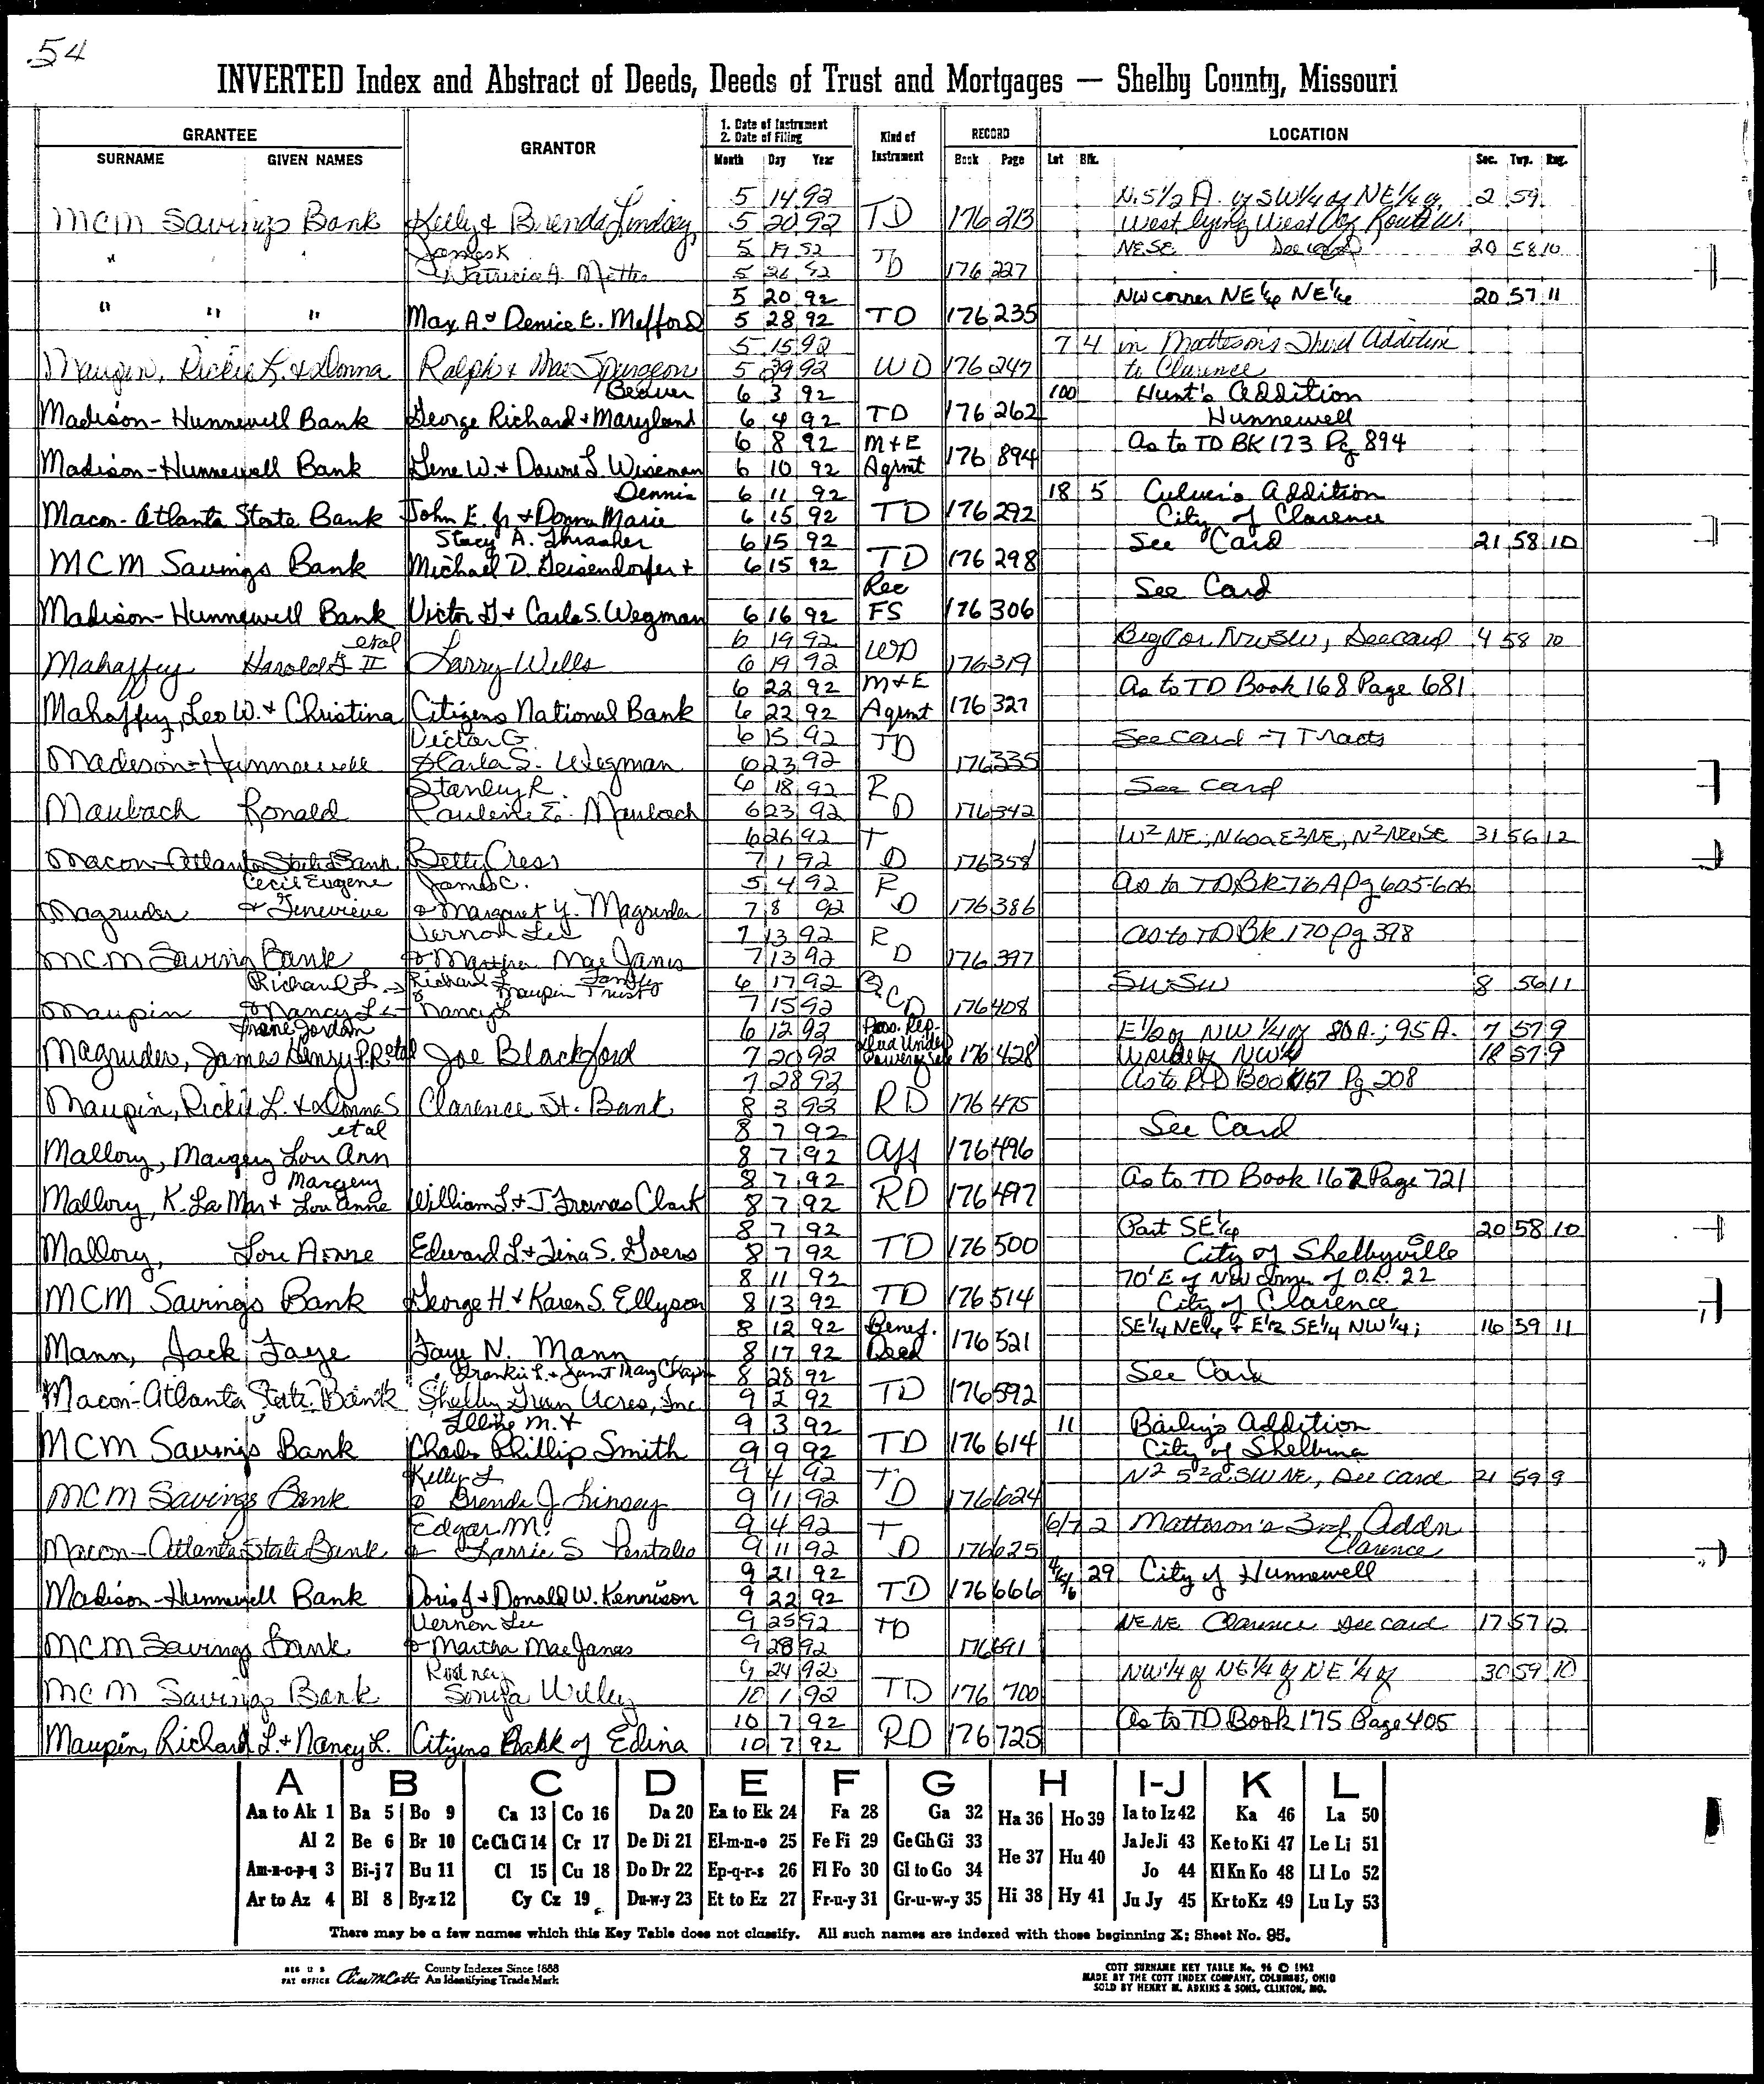 54
INVERTED Index and Abstract of Deeds, Deeds of Trust and Mortgages — Shelby County, Missouri
GRANTEE GRANTOR 1. Date of Instrument 2. Date of Filing Kind of Instrument RECORD LOCATION
SURNAME GIVEN NAMES Month Day Year Book Page Lot Blk. Sec. Twp. Rng.
5 14 92 N. 5 1/2 A. of SW 1/4 of NE 1/4 of, 2 59
MCM Savings Bank Kelly & Brenda Lindsey, 5 20 92 TD 176 213 West lying West of Route W.
James K 5 19 92 NESE See card 20 58 10
" Patricia A. 5 26 92 TD 176 227
5 20 92 NW corner NE 1/4 NE 1/4 20 57 11
" " " Max A. & Denice E. Mefford 5 28 92 TD 176 235
5 15 92 7 4 in Matteson's Third Addition
Maupin, Rickie L. & Donna Ralph & Mae Spurgeon 5 29 92 WD 176 247 to Clarence
Beaver 6 3 92 100 Hunt's Addition
Madison-Hunnewell Bank George Richard & Maryland 6 4 92 TD 176 262 Hunnewell
6 8 92 M+E As to TD BK 173 Pg 894
Madison-Hunnewell Bank Gene W. & Dawne L. Wiseman 6 10 92 Agrmt 176 894
Dennis 6 11 92 18 5 Culver's Addition
Macon-Atlanta State Bank John E. Jr & Donna Marie 6 15 92 TD 176 292 City of Clarence
Stacy A. Thrasher 6 15 92 See Card 21 58 10
MCM Savings Bank Michael D. Geisendorfer & 6 15 92 TD 176 298
Rec See Card
Madison-Hunnewell Bank Victor G & Carla S. Wegman 6 16 92 FS 176 306
etal 6 19 92 Beg Cor NWSW, See card 4 58 10
Mahaffey Harold G II Larry Wells 6 19 92 WD 176 319
6 22 92 M+E As to TD Book 168 Page 681
Mahaffey, Leo W. & Christina Citizens National Bank 6 22 92 Agrmt 176 327
Victor G. 6 15 92 See Card - 7 Tracts
Madison-Hunnewell & Carla S. Wegman 6 23 92 TD 176 335
Stanley R. 6 18 92 See card
Maubach Ronald Pauleine E. Maubach 6 23 92 RD 176 342
6 26 92 W2 NE; N60a E2NE; N2NWSE 31 56 12
Macon-Atlanta State Bank Betty Cress 7 1 92 TD 176 358
Cecil Eugene James C. 5 4 92 As to TD Bk 76A Pg 605-606
Magruder & Genevieve & Margaret Y. Magruder 7 8 92 RD 176 386
Vernon Lee 7 13 92 As to TD Bk. 170 pg 398
MCM Saving Bank & Martha Mae Janes 7 13 92 RD 176 397
Richard L. Richard L Family 6 17 92 SWSW 8 56 11
Maupin & Nancy L & Nancy L Maupin Trust 7 15 92 QCD 176 408
Irene Jordan 6 12 92 Pers. Rep. E 1/2 of NW 1/4 of 80 A.; 95 A. 7 57 9
Magruder, James Henry P.R etal Joe Blackford 7 20 92 Deed Under Power of Sale 176 428 NW 1/4 18 57 9
7 28 92 As to RD Book 167 Pg 208
Maupin, Rickie L. & Donna S Clarence St. Bank 8 3 92 RD 176 475
etal 8 7 92 See Card
Mallory, Margery Lou Ann 8 7 92 Aff 176 496
Margery 8 7 92 As to TD Book 162 Page 721
Mallory, K. La Mar & Lou Anne William L. & J. Frances Clark 8 7 92 RD 176 497
8 7 92 Part SE 1/4 20 58 10
Mallory, Lou Anne Edward L. & Tina S. Goers 8 7 92 TD 176 500 City of Shelbyville
8 11 92 70' E of NW corner of O.L. 22
MCM Savings Bank George H. & Karen S. Ellyson 8 13 92 TD 176 514 City of Clarence
8 12 92 Benef. SE 1/4 NE 1/4 & E 1/2 SE 1/4 NW 1/4; 16 59 11
Mann, Jack Faye Faye N. Mann 8 17 92 Deed 176 521
Frankie L. & Janet May 8 28 92 See Card
Macon-Atlanta State Bank Shelby Green Acres, Inc 9 2 92 TD 176 592
M. & 9 3 92 11 Bailey's Addition
MCM Savings Bank Charles Phillip Smith 9 9 92 TD 176 614 City of Shelbina
Kelly L 9 4 92 N2 52a SWNE, See card 21 59 9
MCM Savings Bank & Brenda J Linsey 9 11 92 TD 176 624
Edgar M. 9 4 92 6/7 2 Matteson's 3rd Addn
Macon-Atlanta State Bank & Larrie S Pantaleo 9 11 92 TD 176 625 Clarence
9 21 92 29 City of Hunnewell
Madison-Hunnewell Bank Doris J & Donald W. Kennison 9 22 92 TD 176 666
Vernon Lee 9 25 92 NENE Clarence See card 17 57 12
MCM Savings Bank & Martha Mae Janes 9 28 92 TD 176 691
Rodney 9 24 92 NW 1/4 of NE 1/4 of NE 1/4 of 30 59 10
MCM Savings Bank Sonya Willey 10 1 92 TD 176 700
10 7 92 As to TD Book 175 Page 405
Maupin, Richard L. & Nancy L. Citizens Bank of Edina 10 7 92 RD 176 725
A B C D E F G H I-J K L
Aa to Ak 1 Ba 5 Bo 9 Ca 13 Co 16 Da 20 Ea to Ek 24 Fa 28 Ga 32 Ha 36 Ho 39 Ia to Iz 42 Ka 46 La 50
Al 2 Be 6 Br 10 Ce Ch Ci 14 Cr 17 De Di 21 El-m-n-o 25 Fe Fi 29 Ge Gh Gi 33 He 37 Hu 40 Ja Je Ji 43 Ke to Ki 47 Le Li 51
Am-n-o-p-q 3 Bi-j 7 Bu 11 Cl 15 Cu 18 Do Dr 22 Ep-q-r-s 26 Fl Fo 30 Gl to Go 34 Jo 44 Kl Kn Ko 48 Ll Lo 52
Ar to Az 4 Bl 8 By-z 12 Cy Cz 19 Du-w-y 23 Et to Ez 27 Fr-u-y 31 Gr-u-w-y 35 Hi 38 Hy 41 Ju Jy 45 Kr to Kz 49 Lu Ly 53
There may be a few names which this Key Table does not classify. All such names are indexed with those beginning X; Sheet No. 95.
REG U S PAT OFFICE County Indexes Since 1888 An Identifying Trade Mark
COTT SURNAME KEY TABLE No. 96 © 1962
MADE BY THE COTT INDEX COMPANY, COLUMBUS, OHIO
SOLD BY HENRY M. ADKINS & SONS, CLINTON, MO.